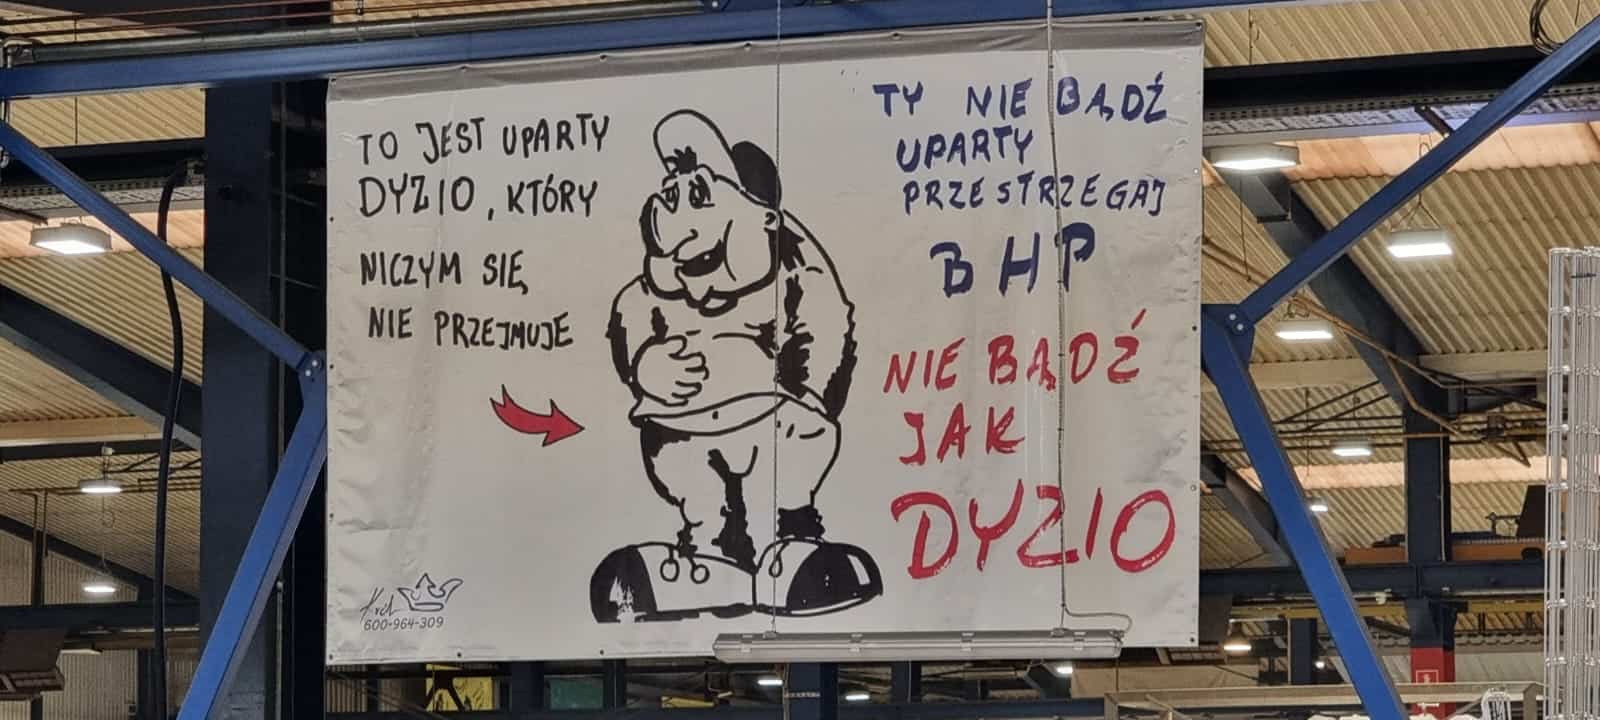 TO JEST UPARTY
DYZIO, KTÓRY
NICZYM SIĘ
NIE PRZEJMUJE
TY NIE BĄDŹ
UPARTY
PRZESTRZEGAJ
BHP
NIE BĄDŹ
JAK
DYZIO
Król
600-964-309